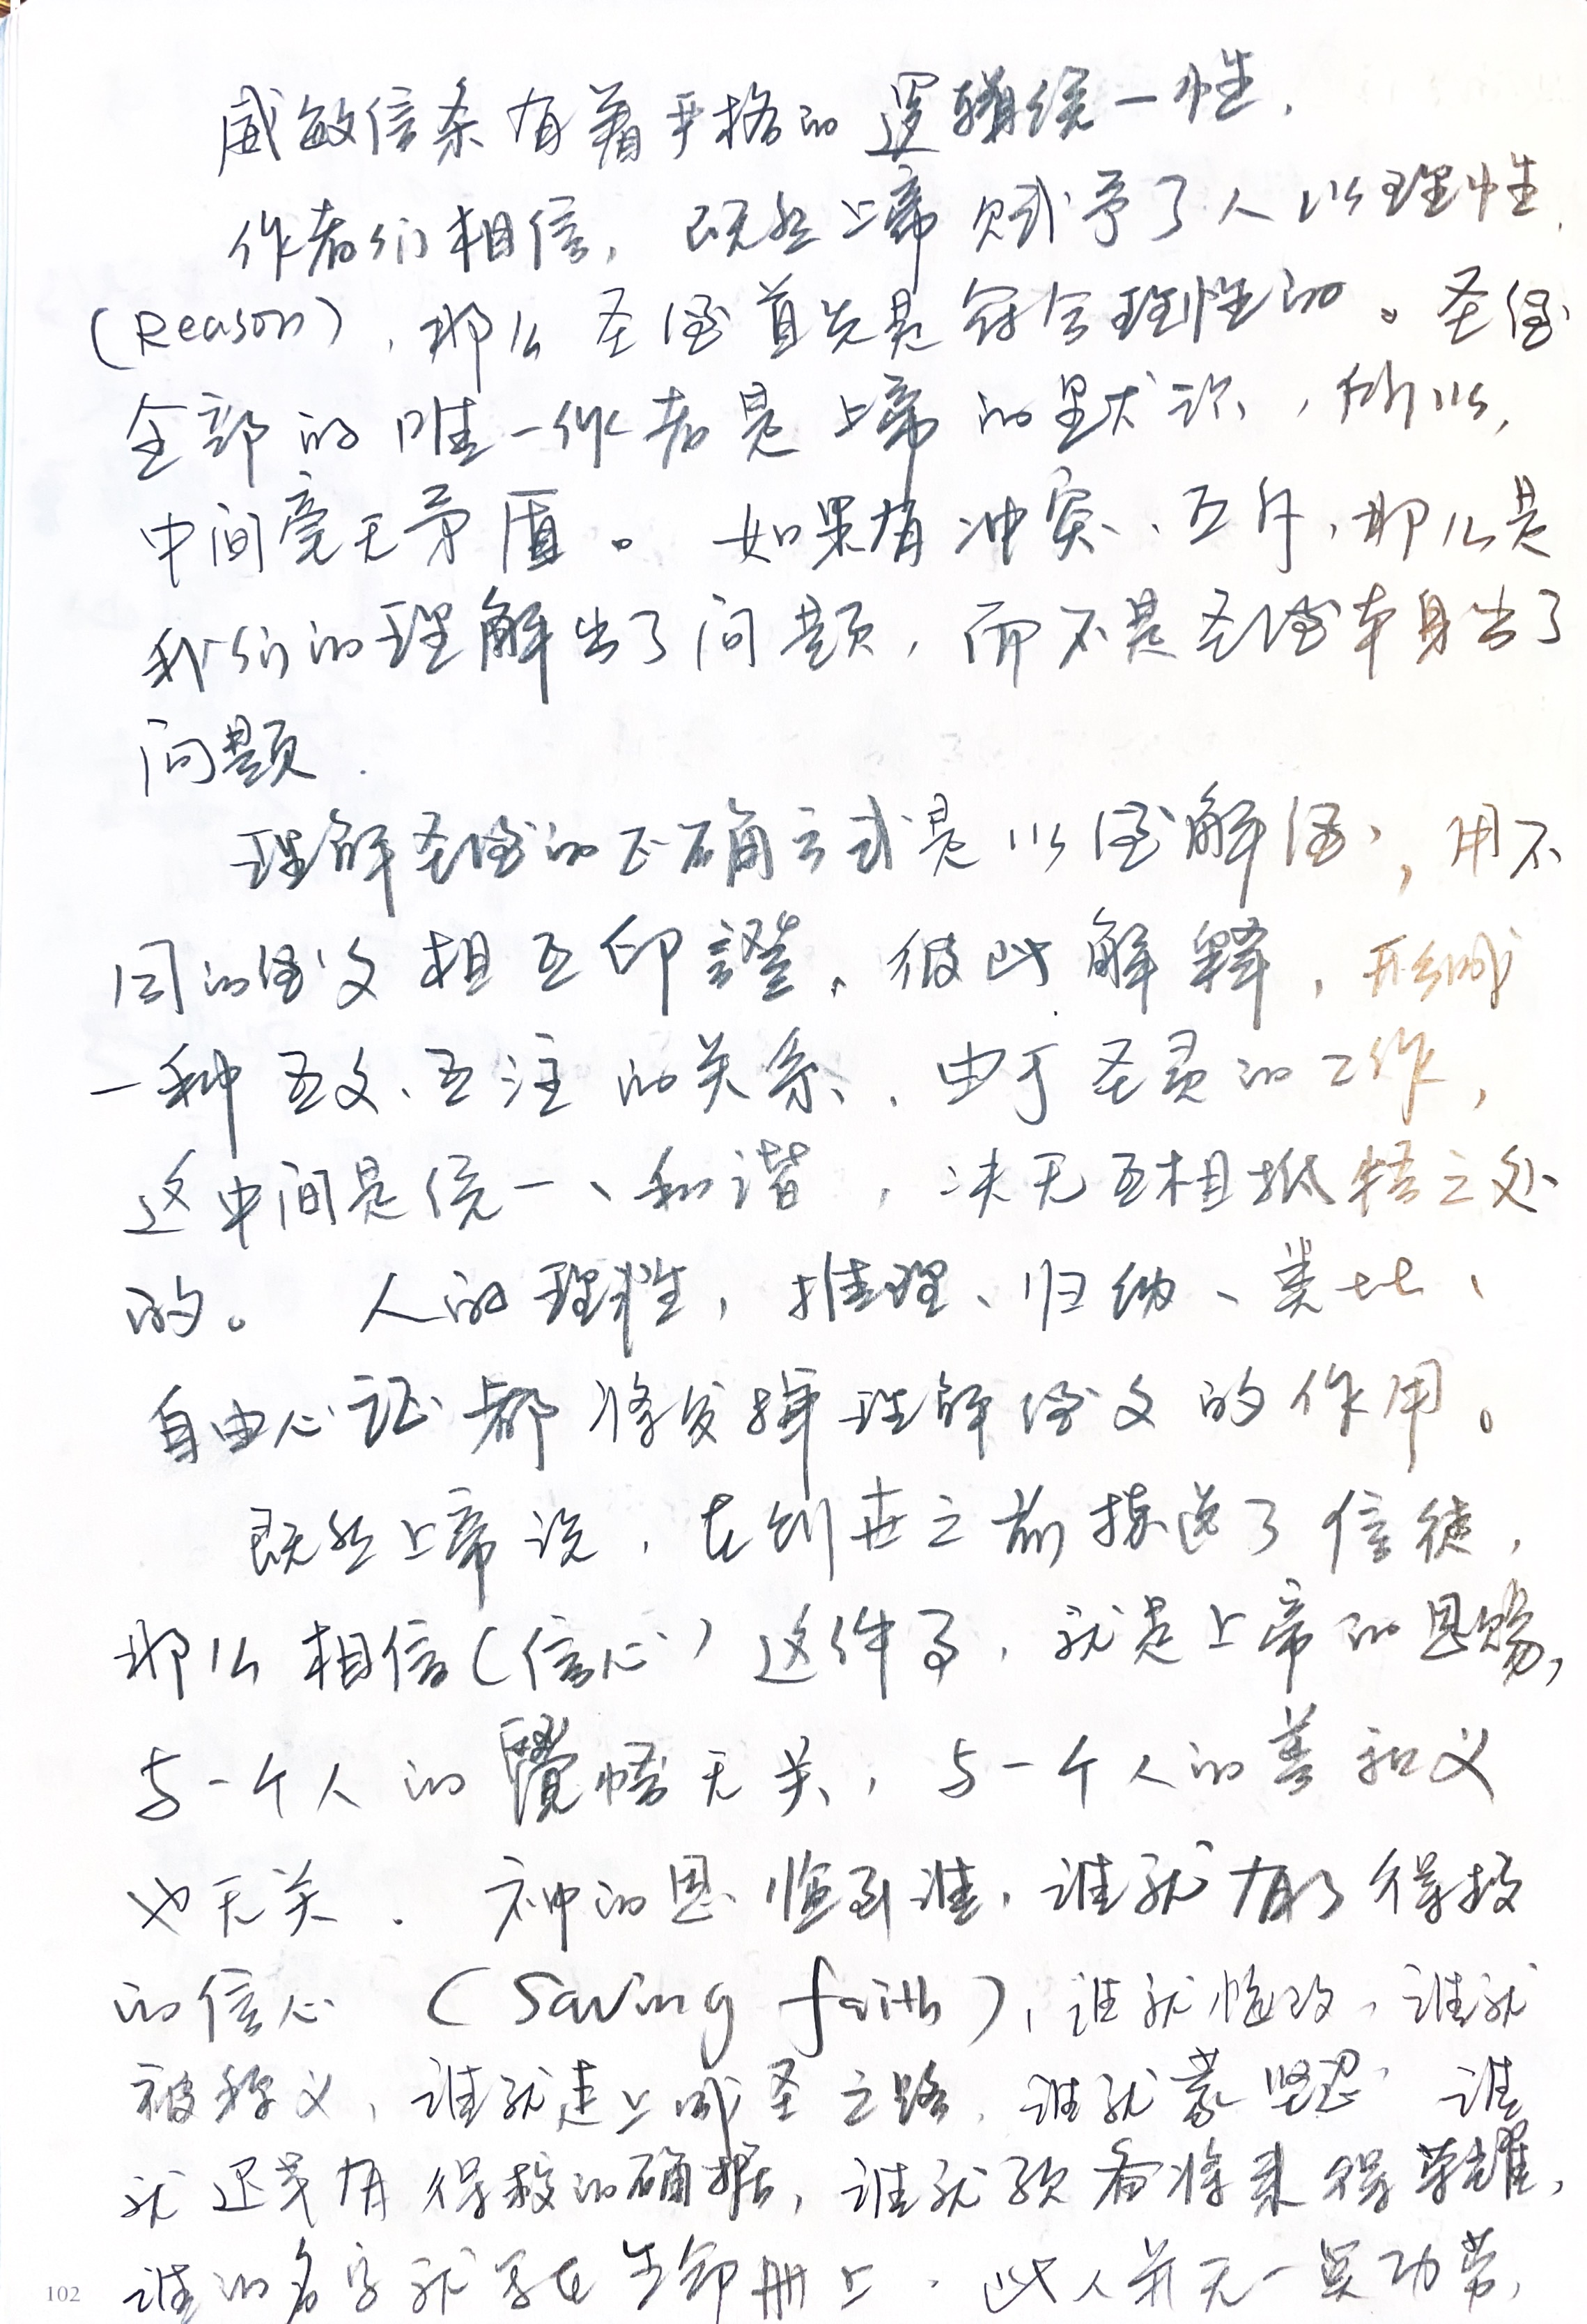 威敏信条有着严格的逻辑统一性.
作者们相信, 既然上帝赋予了人以理性.
(Reason), 那么圣经首先是符合理性的。圣经
全部的唯一作者是上帝的默示, 所以,
中间毫无矛盾。 如果有冲突、互斥, 那么是
我们的理解出了问题, 而不是圣经本身出了
问题.
理解圣经的正确方式是以经解经, 用不
同的经文相互印證, 彼此解釋, 形成
一种互文、互注的关系. 由于圣灵的工作,
这中间是统一、和谐, 决无互相抵牾之处
的。 人的理性, 推理、归纳、类比、
自由心证都将发挥理解经文的作用。
既然上帝说, 在创世之前拣选了信徒,
那么相信(信心)这件事, 就是上帝的恩赐,
与一个人的覺悟无关, 与一个人的善和义
也无关. 神的恩临到谁, 谁就有了得救
的信心 (Saving faith), 谁就悔改, 谁就
被称义, 谁就走上成圣之路, 谁就蒙坚忍 谁
就还有得救的确据, 谁就预备将来得荣耀,
谁的名字就写在生命册上. 此人并无一点功劳,
102